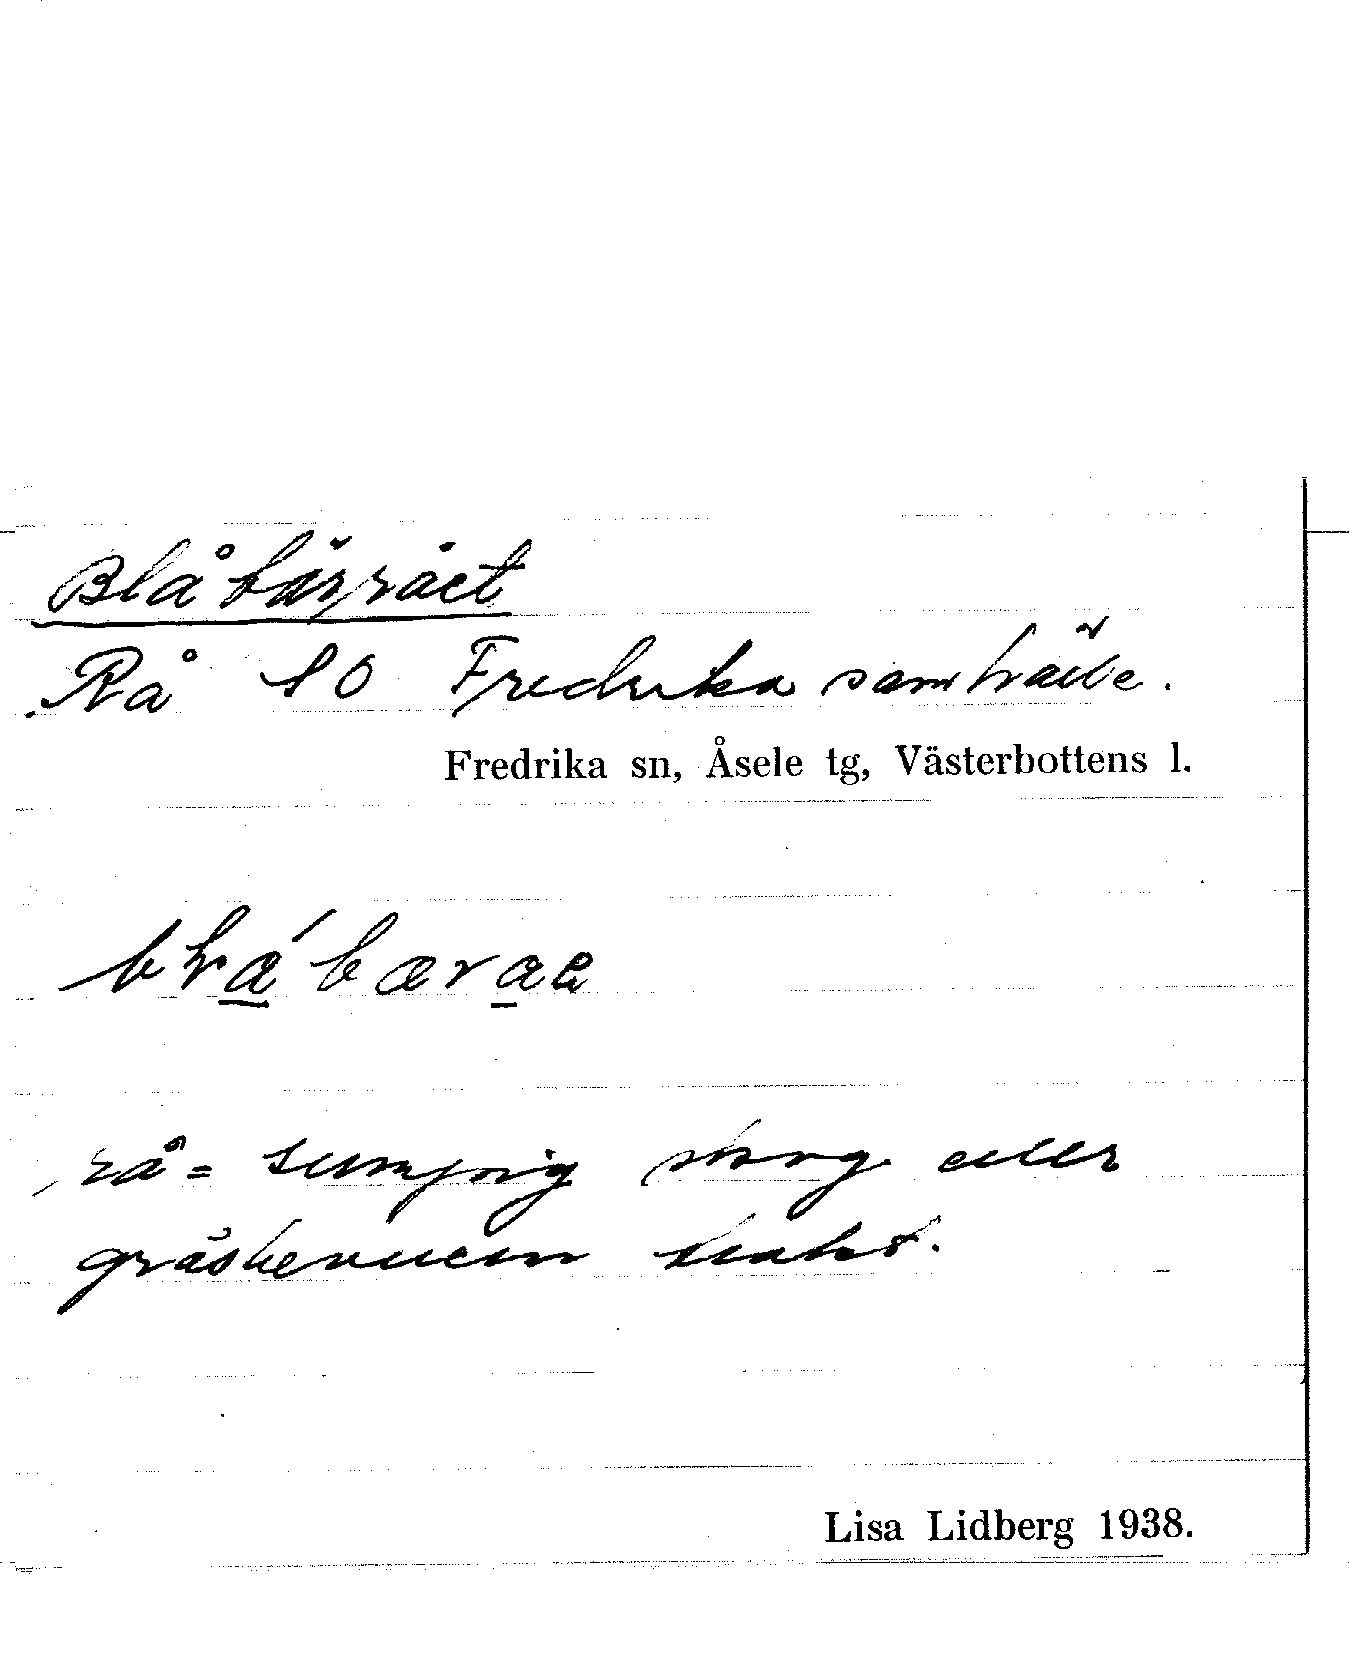 Blåbärrået
Rå SO Fredrika samhälle.
Fredrika sn, Åsele tg, Västerbottens l.
rå = sumpig skog eller
gräsbevuxen trakt.
Lisa Lidberg 1938.